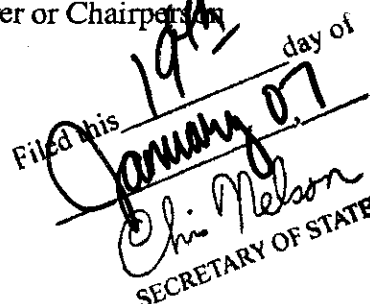 er or Chairperson
Filed this 19th day of
January 07,
Chris Nelson
SECRETARY OF STATE